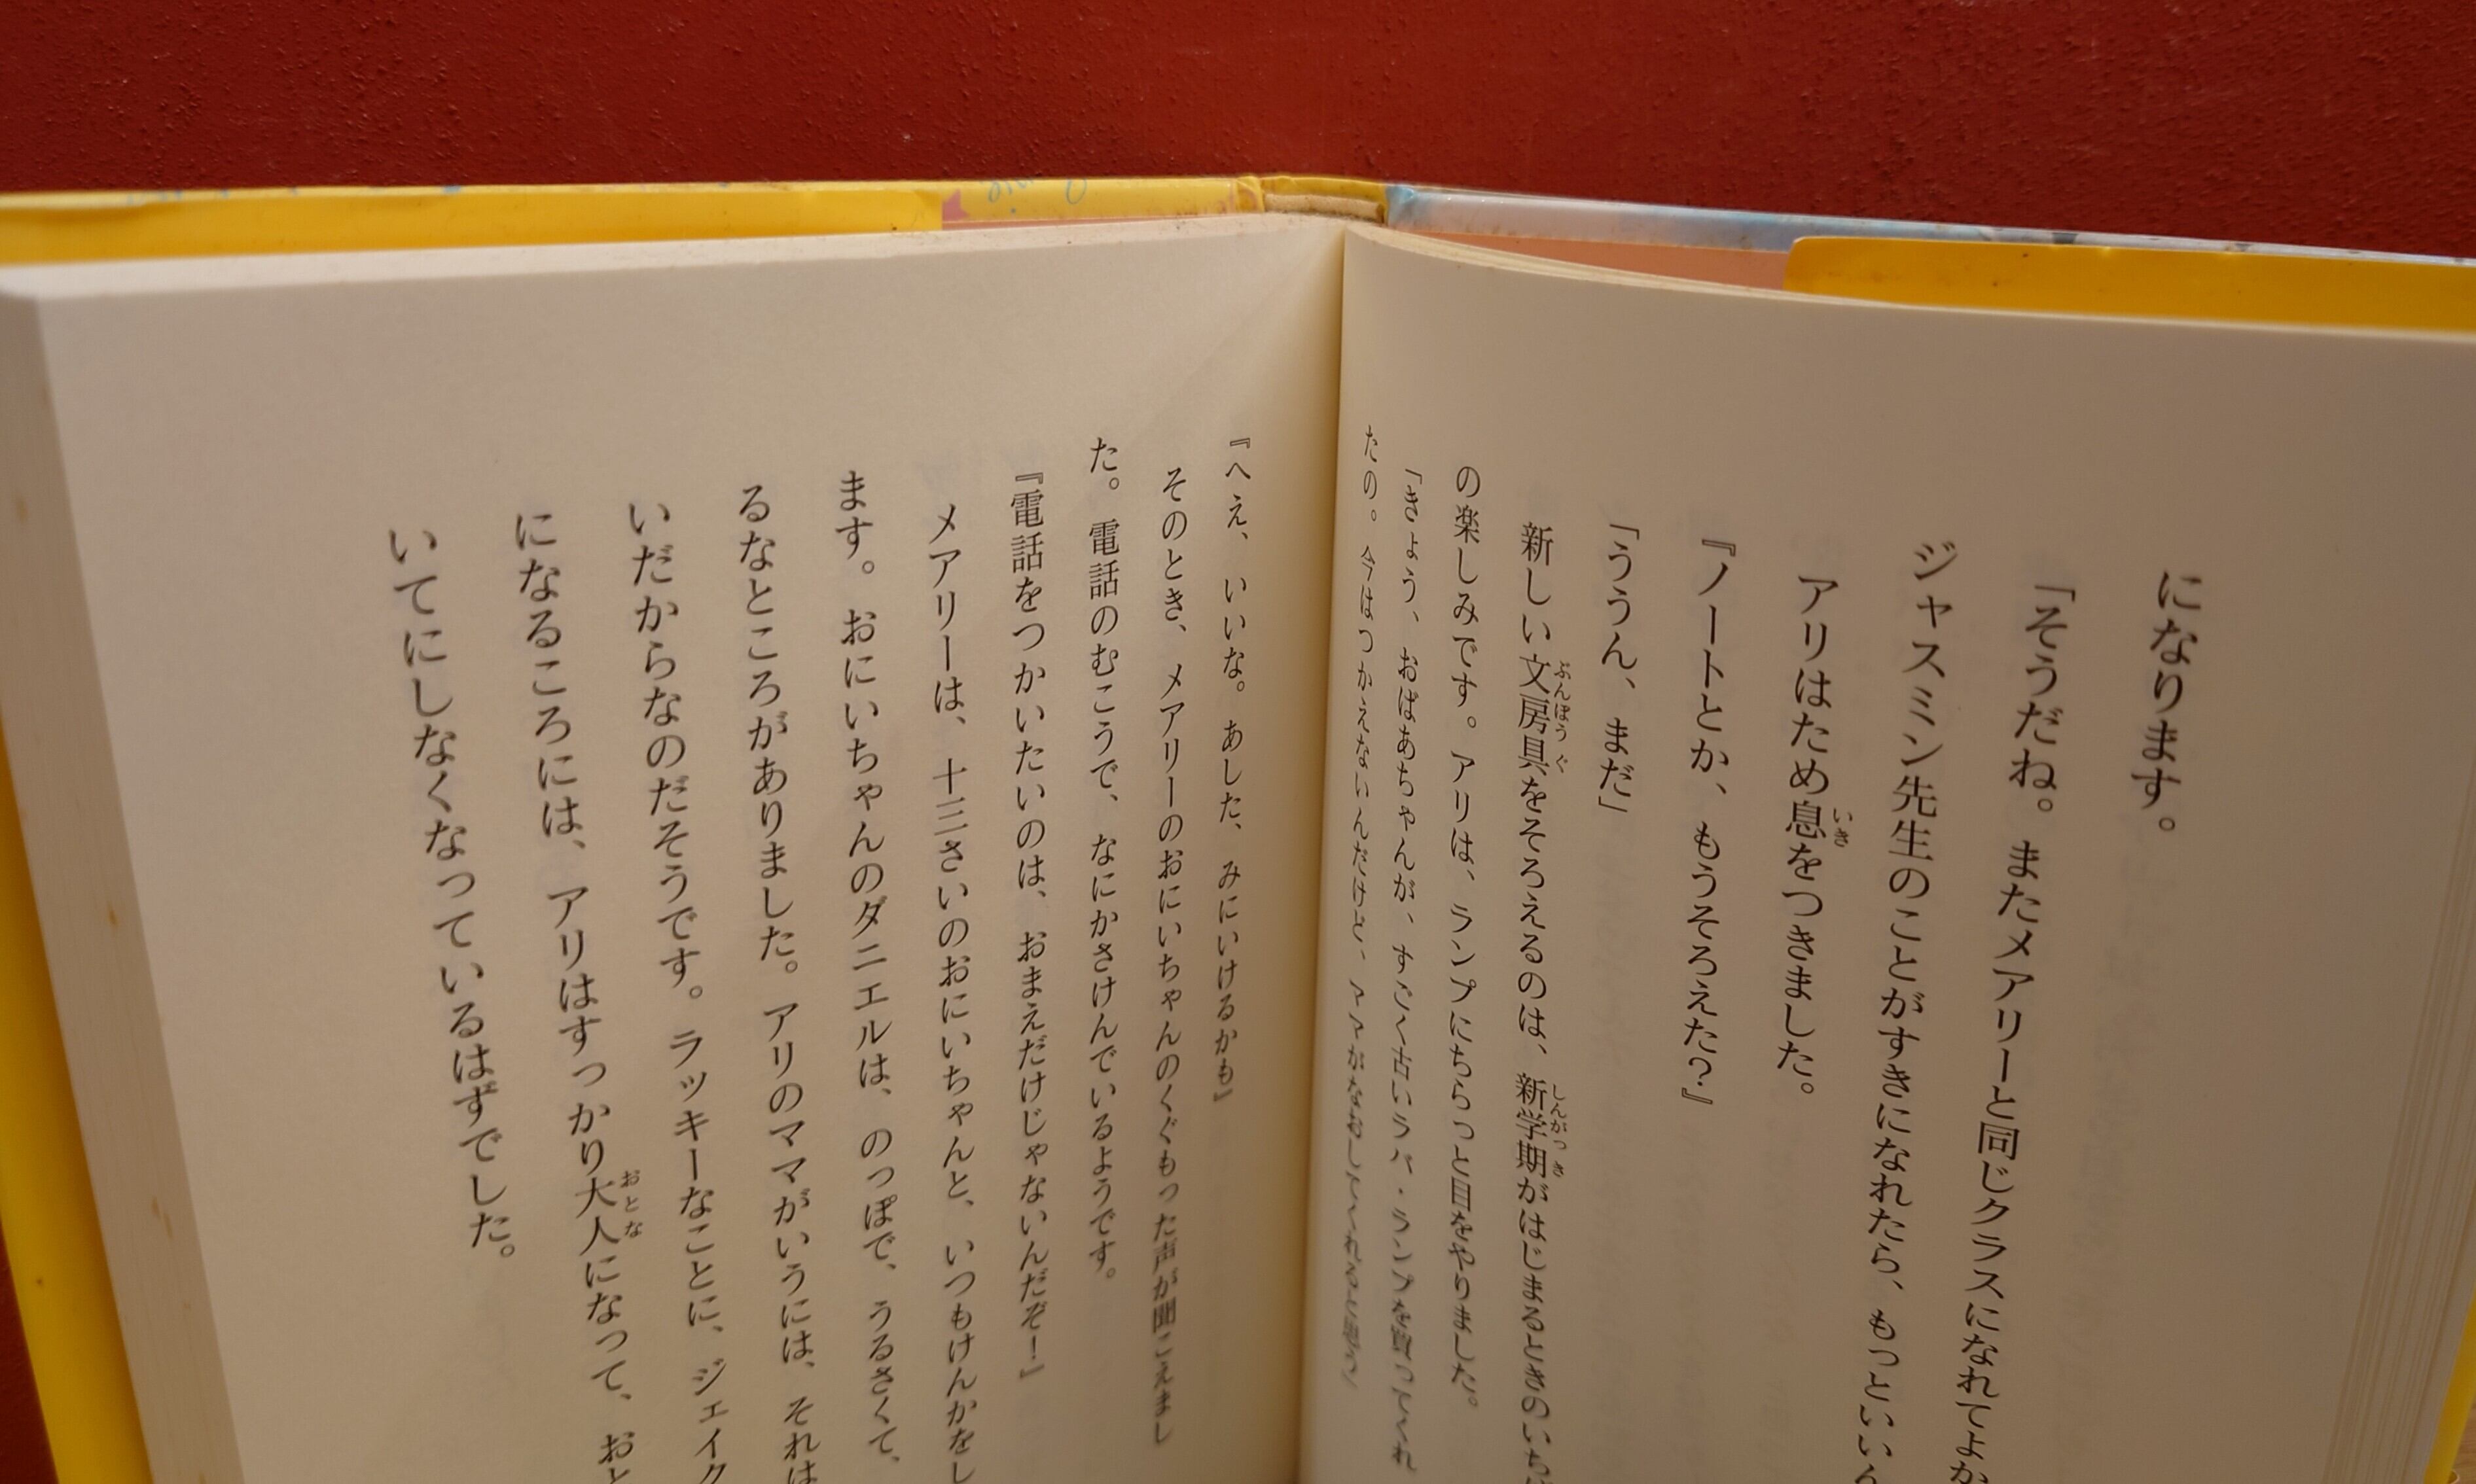 になります。
「そうだね。またメアリーと同じクラスになれてよか
ジャスミン先生のことがすきになれたら、もっといい
アリはため息をつきました。
『ノートとか、もうそろえた？』
「ううん、まだ」
新しい文房具をそろえるのは、新学期がはじまるときのいちば
の楽しみです。アリは、ランプにちらっと目をやりました。
「きょう、おばあちゃんが、すごく古いラバ・ランプを買ってくれ
たの。今はつかえないんだけど、ママがなおしてくれると思う」
『へえ、いいな。あした、みにいけるかも』
そのとき、メアリーのおにいちゃんのくぐもった声が聞こえまし
た。電話のむこうで、なにかさけんでいるようです。
『電話をつかいたいのは、おまえだけじゃないんだぞ！』
メアリーは、十三さいのおにいちゃんと、いつもけんかをし
ます。おにいちゃんのダニエルは、のっぽで、うるさくて、
るなところがありました。アリのママがいうには、それは
いだからなのだそうです。ラッキーなことに、ジェイク
になるころには、アリはすっかり大人になって、おと
いてにしなくなっているはずでした。